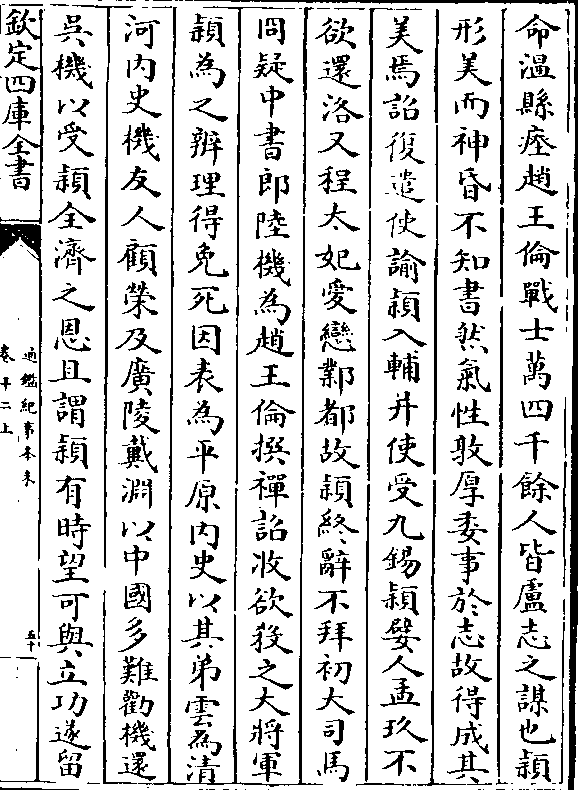 命溫縣瘞趙王倫戰士萬四千餘人皆盧志之謀也穎
形美而神昏不知書然氣性敦厚委事於志故得成其
美焉詔復遣使諭穎入輔并使受九錫穎嬖人孟玖不
欲還洛又程太妃愛戀鄴都故穎終辭不拜初大司馬
冏疑中書郎陸機為趙王倫撰禪詔收欲殺之大將軍
穎為之辨理得免死因表為平原内史以其弟雲為清
河内史機友人顧榮及廣陵戴淵以中國多難勸機還
吳機以受穎全濟之恩且謂穎有時望可與立功遂留
欽定四庫全書
通鑑紀事本末
卷十二上
五十